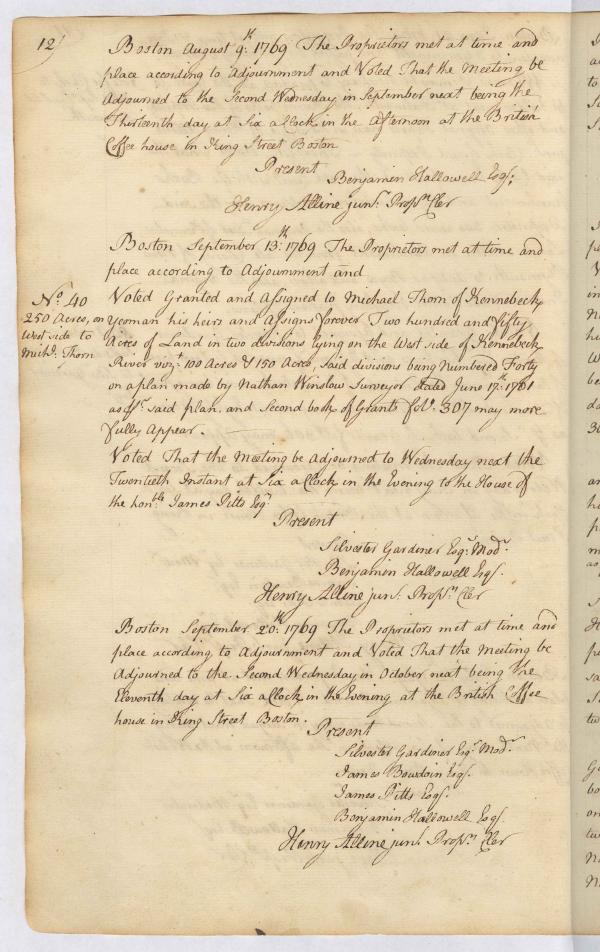 12)
Boston August 9th: 1769 The Proprietors met at time and
place according to Adjournment and Voted That the Meeting be
Adjourned to the Second Wednesday in September next being the
Thirteenth day at Six aClock in the Afternoon at the British
Coffee house in King Street Boston
Present
Benjamin Hallowell Esqr.
Henry Alline junr. Proprs Cler
Boston September 13th: 1769 The Proprietors met at time and
place according to Adjournment and
No. 40
250 Acres, on
West side to
Michl. Thorn
Voted Granted and Assigned to Michael Thorn of Kennebeck
Yeoman his heirs and Assigns forever Two hundred and fifty
Acres of Land in two divisions lying on the West side of Kennebeck
River vizt. 100 Acres & 150 Acres, said divisions being Numbered Forty
on a plan made by Nathan Winslow Surveyor dated June 17: 1761
as pr. said plan, and Second book of Grants fol. 307 may more
fully Appear.
Voted That the Meeting be Adjourned to Wednesday next the
Twentieth Instant at Six aClock in the Evening to the House of
the honble James Pitts Esqr
Present
Silvester Gardiner Esqr. Modr.
Benjamin Hallowell Esqr.
Henry Alline junr. Proprs Cler
Boston September 20th: 1769 The Proprietors met at time and
place according to Adjournment and Voted That the Meeting be
Adjourned to the Second Wednesday in October next being the
Eleventh day at Six aClock in the Evening at the British Coffee
house in King Street Boston.
Present
Silvester Gardiner Esqr. Modr.
James Bowdoin Esqr.
James Pitts Esqr.
Benjamin Hallowell Esqr.
Henry Alline junr. Proprs Cler